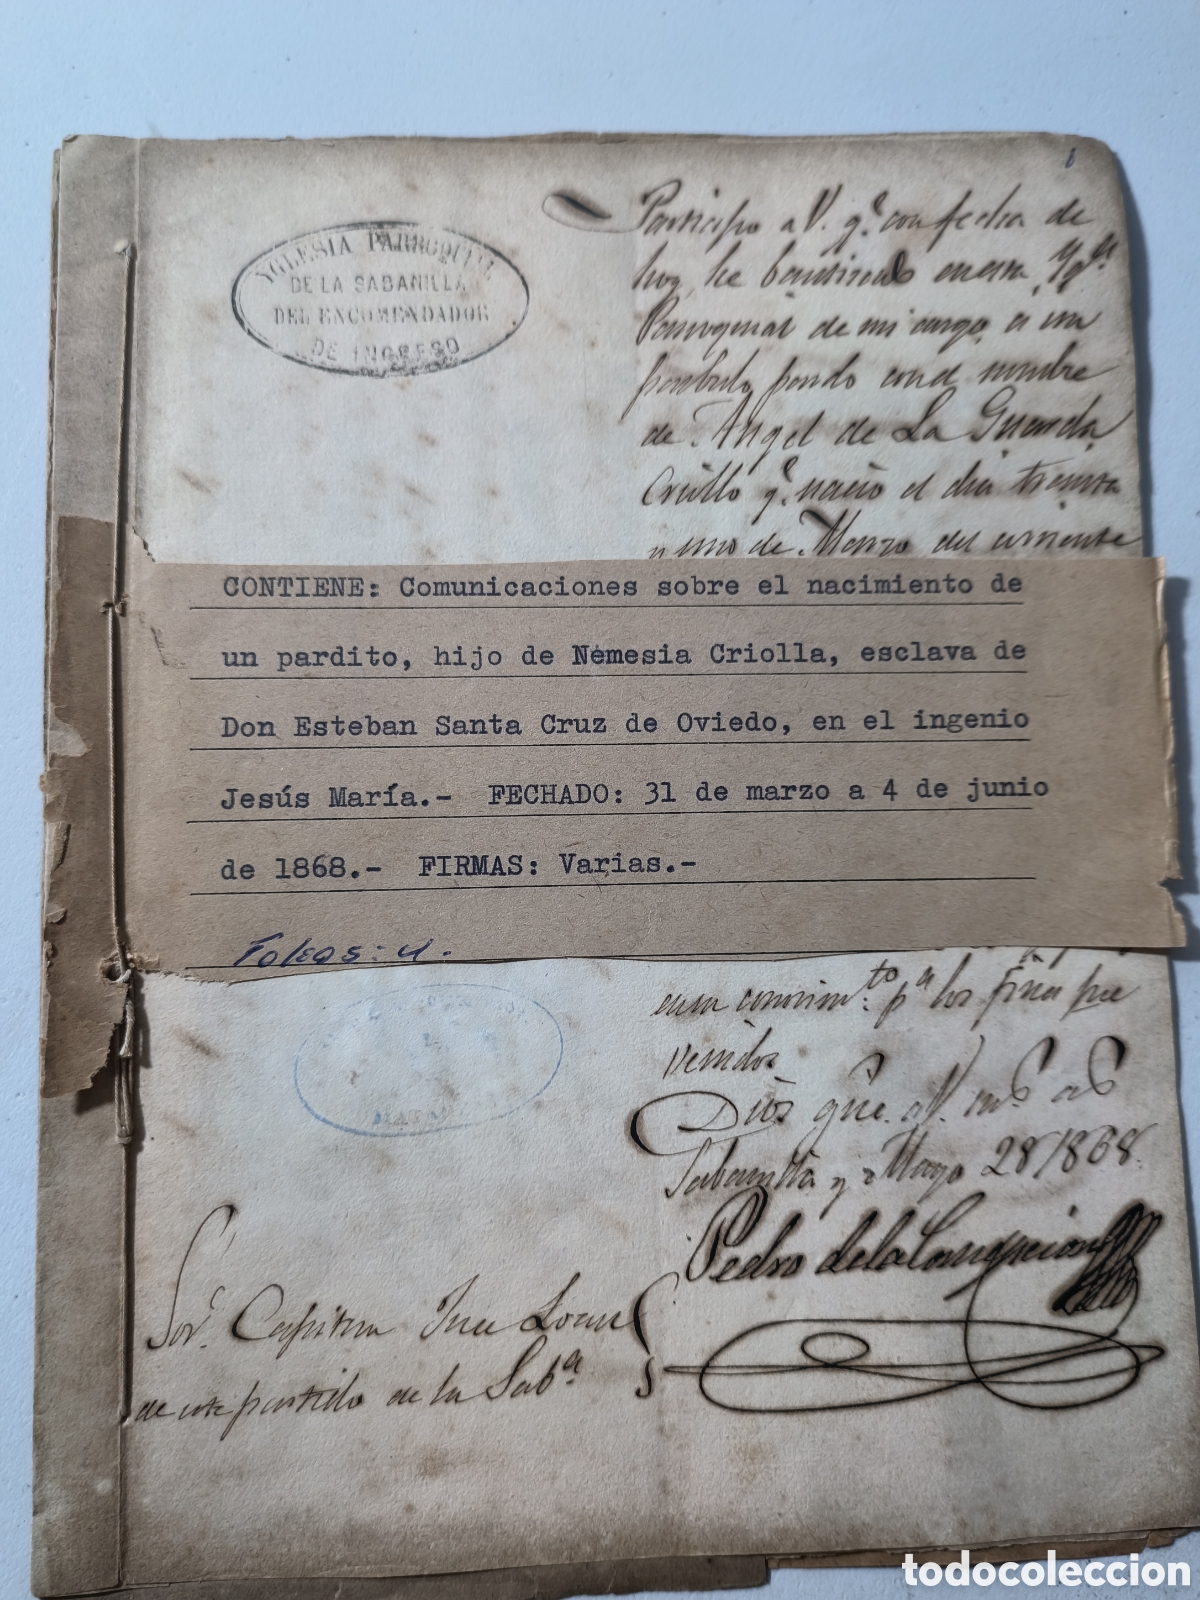 1
YGLESIA PARROQUIAL
DE LA SABANILLA
DEL ENCOMENDADOR
DE INGRESO
Participo a V. qe. con fecha de
hoy he bautizado en esta Yga.
Parroquial de mi cargo, a un
párbulo pardo con el nombre
de Angel de La Guarda
Criollo qe. nació el dia treinta
y uno de Marzo del corriente
CONTIENE: Comunicaciones sobre el nacimiento de
un pardito, hijo de Nemesia Criolla, esclava de
Don Esteban Santa Cruz de Oviedo, en el ingenio
Jesús María.- FECHADO: 31 de marzo a 4 de junio
de 1868.- FIRMAS: Varias.-
Folios: 4.
conocimto. pa. los fines pre
venidos
Dios gue. a V. ms. as
Sabanilla y Mayo 28/868.
Pedro de la Concepcion
Sor. Capitan Juez Local
de este partido de la Saba.
todocoleccion